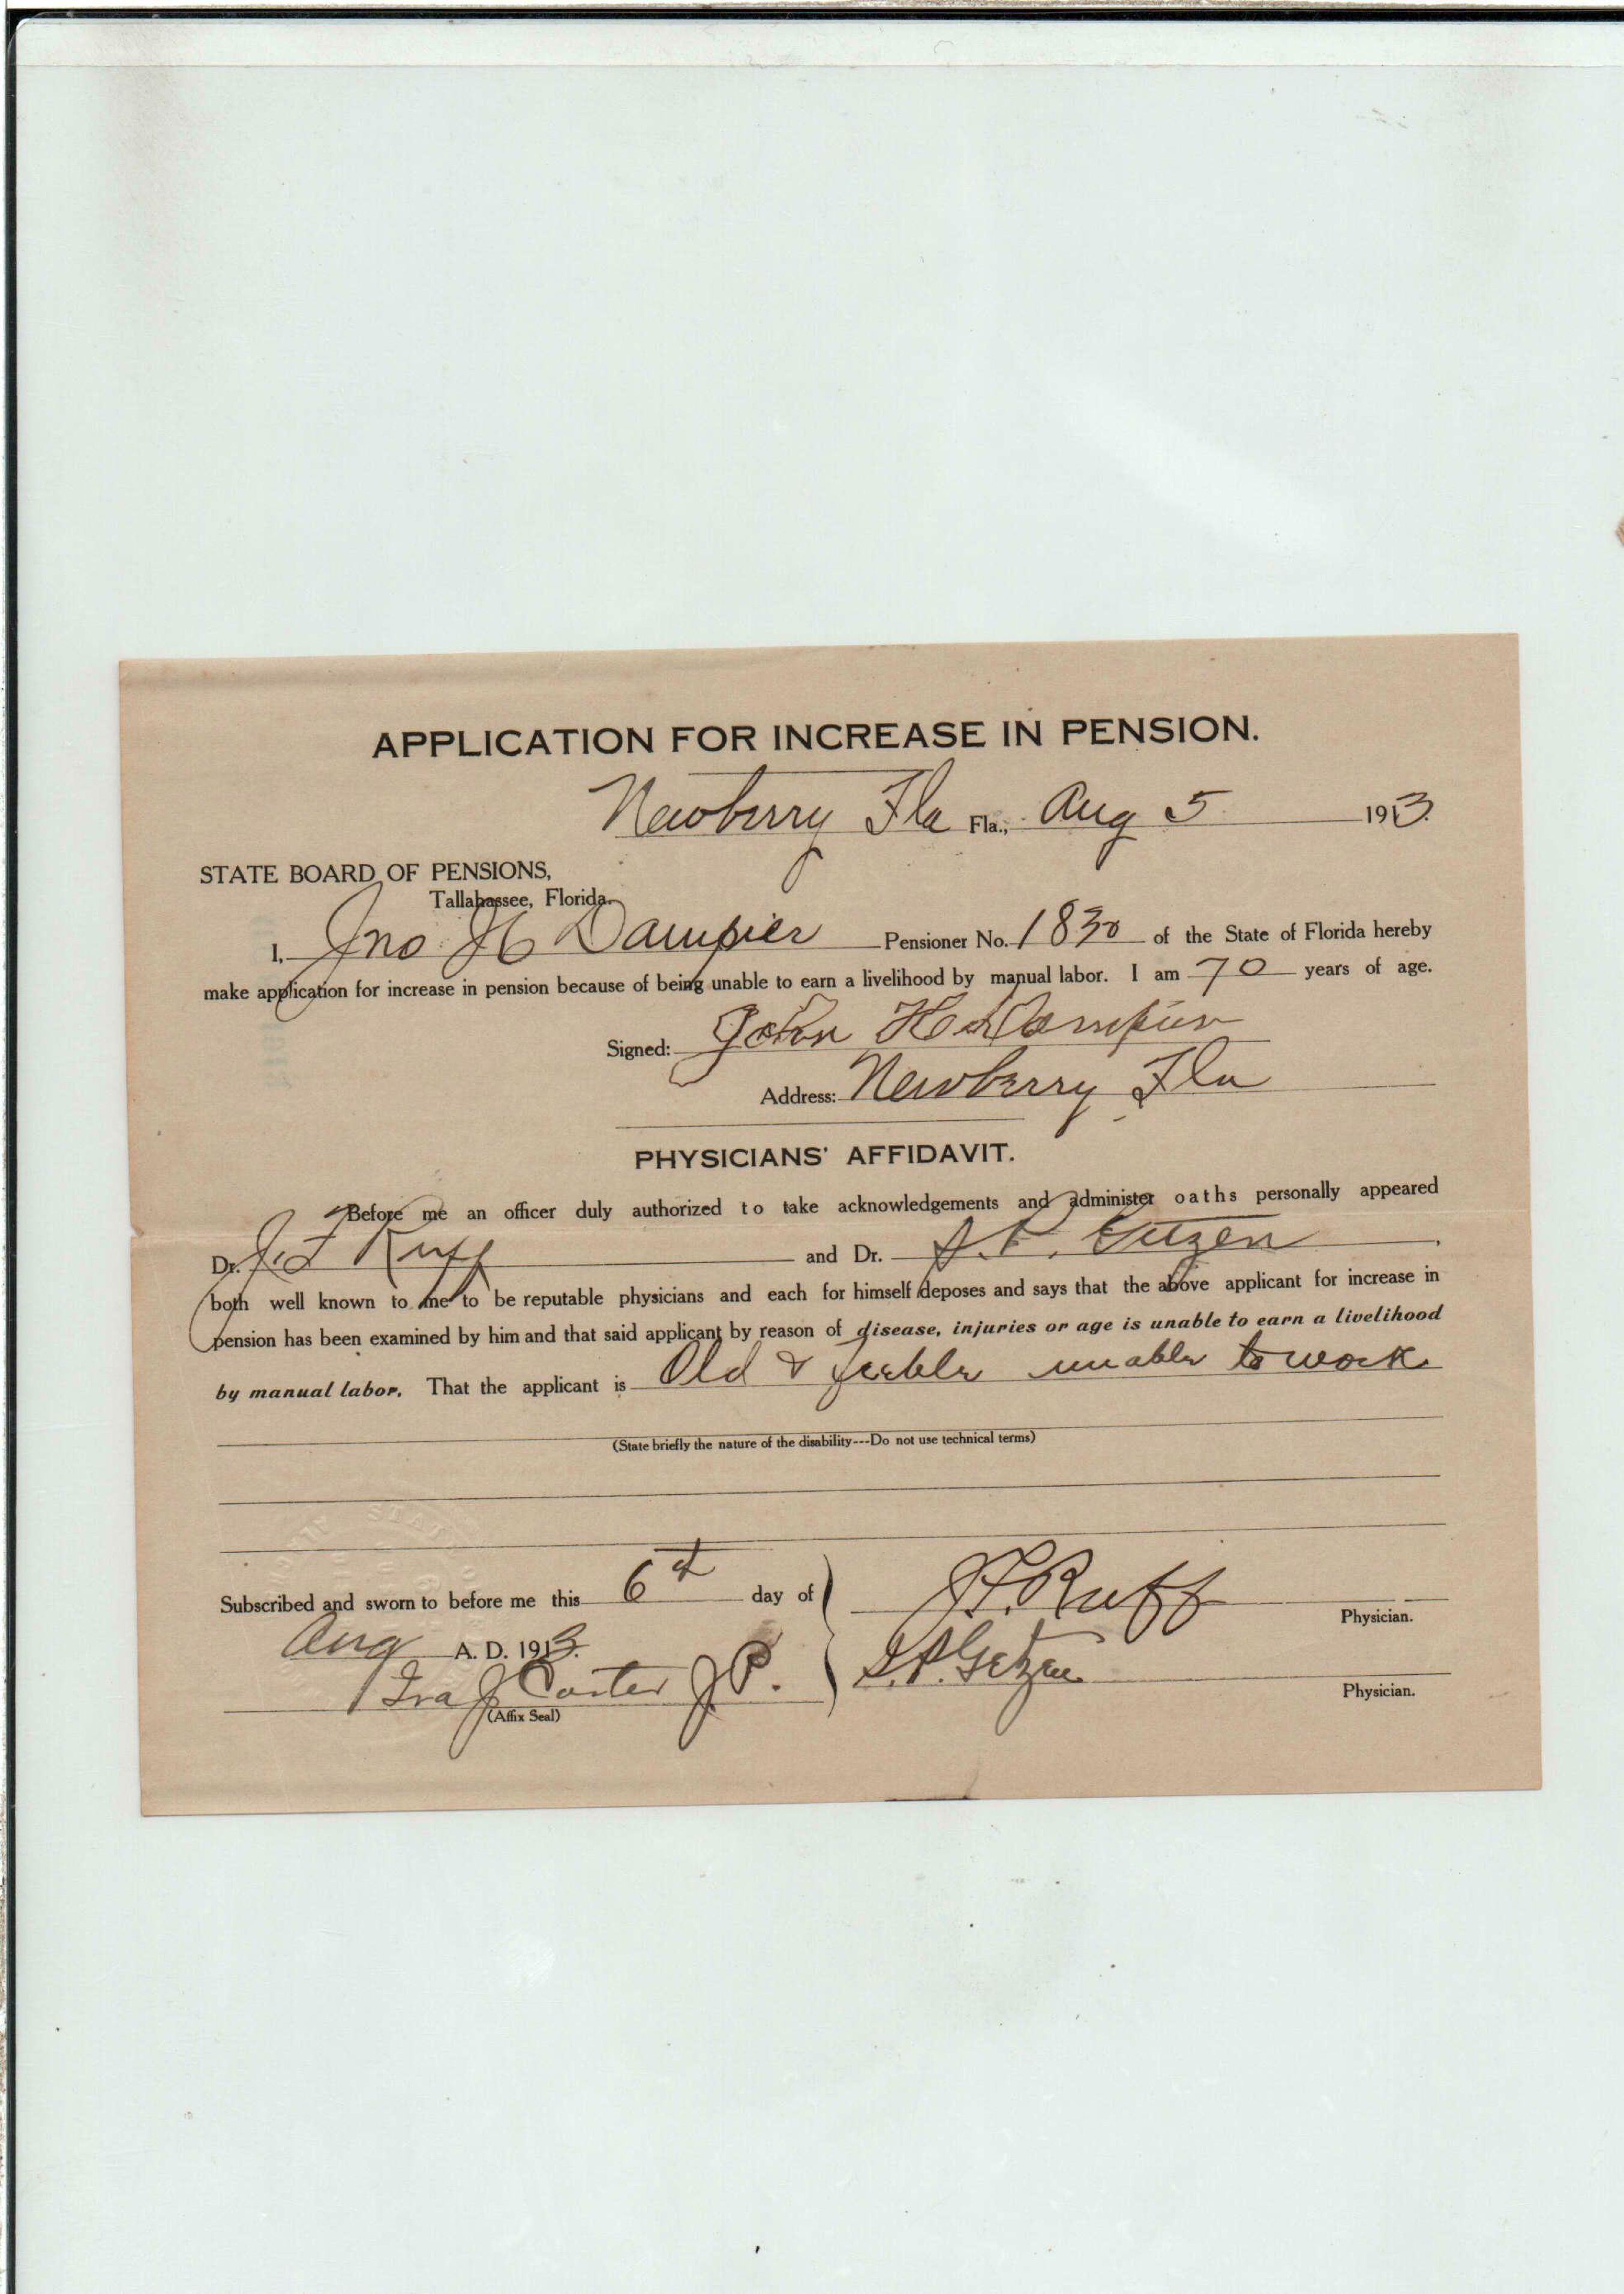 APPLICATION FOR INCREASE IN PENSION.
Newberry Fla Fla., Aug 5 1913.
STATE BOARD OF PENSIONS,
Tallahassee, Florida.
I, Jno H Dampier Pensioner No. 1830 of the State of Florida hereby
make application for increase in pension because of being unable to earn a livelihood by manual labor. I am 70 years of age.
Signed: John H Dampier
Address: Newberry Fla
PHYSICIANS' AFFIDAVIT.
Before me an officer duly authorized to take acknowledgements and administer oaths personally appeared
Dr. J. F Ruff and Dr. S. P. Getzen
both well known to me to be reputable physicians and each for himself deposes and says that the above applicant for increase in
pension has been examined by him and that said applicant by reason of disease, injuries or age is unable to earn a livelihood
by manual labor. That the applicant is Old & feeble unable to work
(State briefly the nature of the disability---Do not use technical terms)
Subscribed and sworn to before me this 6th day of
Aug A. D. 1913.
Ira J Carter J P.
(Affix Seal)
J. F. Ruff
Physician.
S. P. Getzen
Physician.